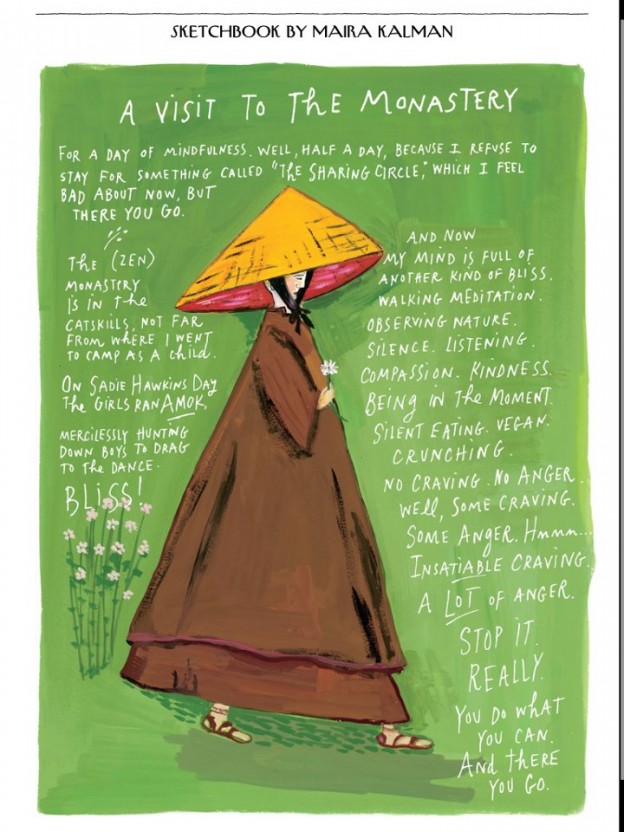 SKETCHBOOK BY MAIRA KALMAN
A VISIT TO THE MONASTERY
FOR A DAY OF MINDFULNESS. WELL, HALF A DAY, BECAUSE I REFUSE TO
STAY FOR SOMETHING CALLED "THE SHARING CIRCLE," WHICH I FEEL
BAD ABOUT NOW, BUT
THERE YOU GO.
THE (ZEN)
MONASTERY
IS IN THE
CATSKILLS, NOT FAR
FROM WHERE I WENT
TO CAMP AS A CHILD.
ON SADIE HAWKINS DAY
THE GIRLS RAN AMOK,
MERCILESSLY HUNTING
DOWN BOYS TO DRAG
TO THE DANCE.
BLISS!
AND NOW
MY MIND IS FULL OF
ANOTHER KIND OF BLISS.
WALKING MEDITATION.
OBSERVING NATURE.
SILENCE. LISTENING.
COMPASSION. KINDNESS.
BEING IN THE MOMENT.
SILENT EATING. VEGAN.
CRUNCHING.
NO CRAVING. NO ANGER.
WELL, SOME CRAVING.
SOME ANGER. Hmmm...
INSATIABLE CRAVING.
A LOT OF ANGER.
STOP IT.
REALLY.
YOU DO WHAT
YOU CAN.
AND THERE
YOU GO.